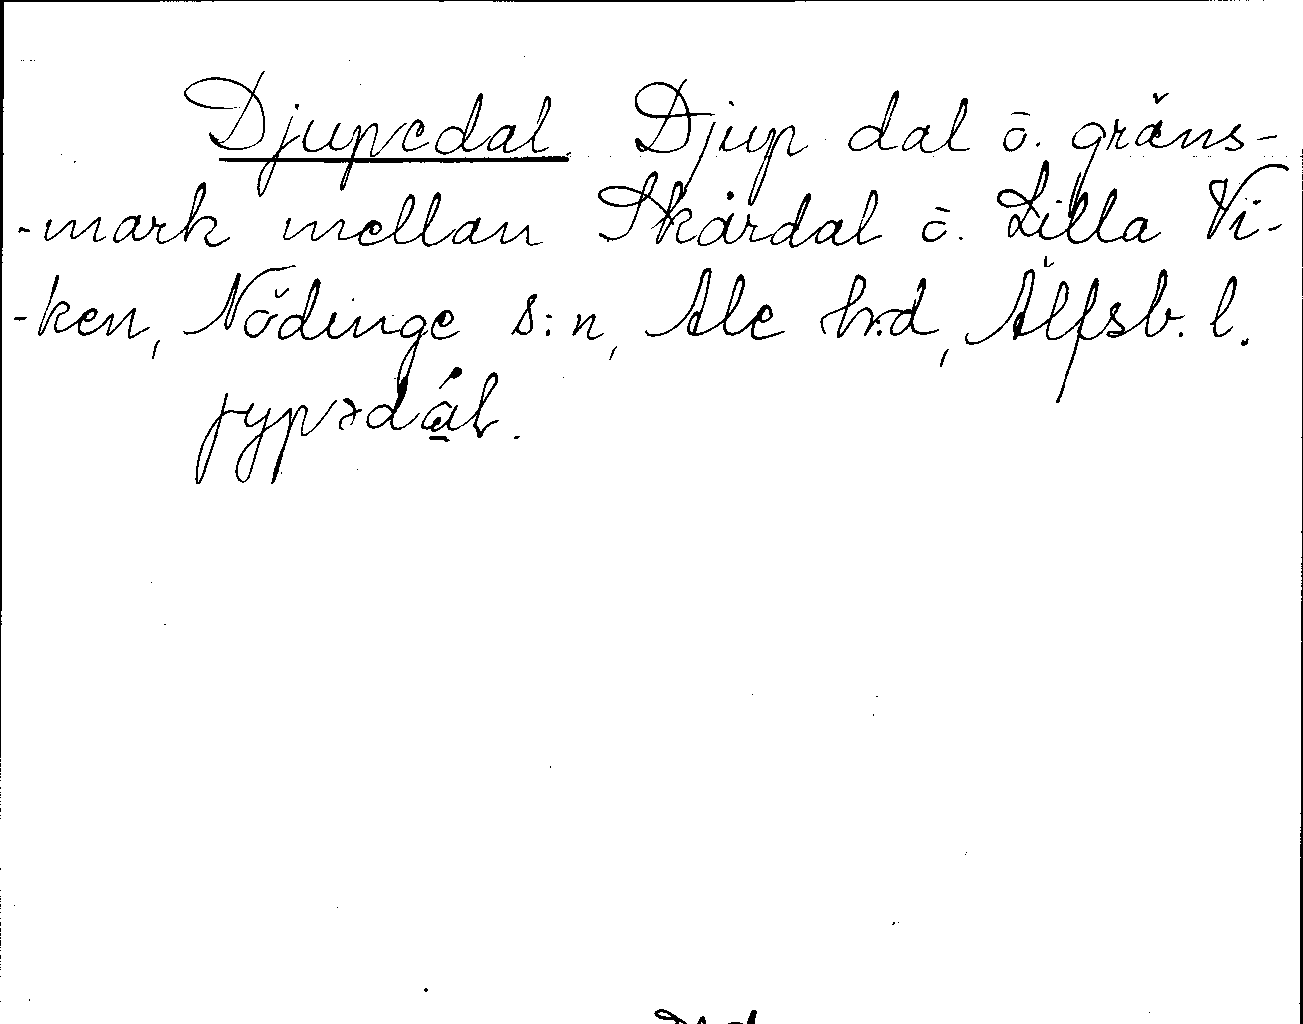 Djupedal. Djup dal ö. gräns-
-mark mellan Skårdal ö. Lilla Vi-
-ken, Nödinge s:n, Ale hrd, Älfsb. l.
jypədál.